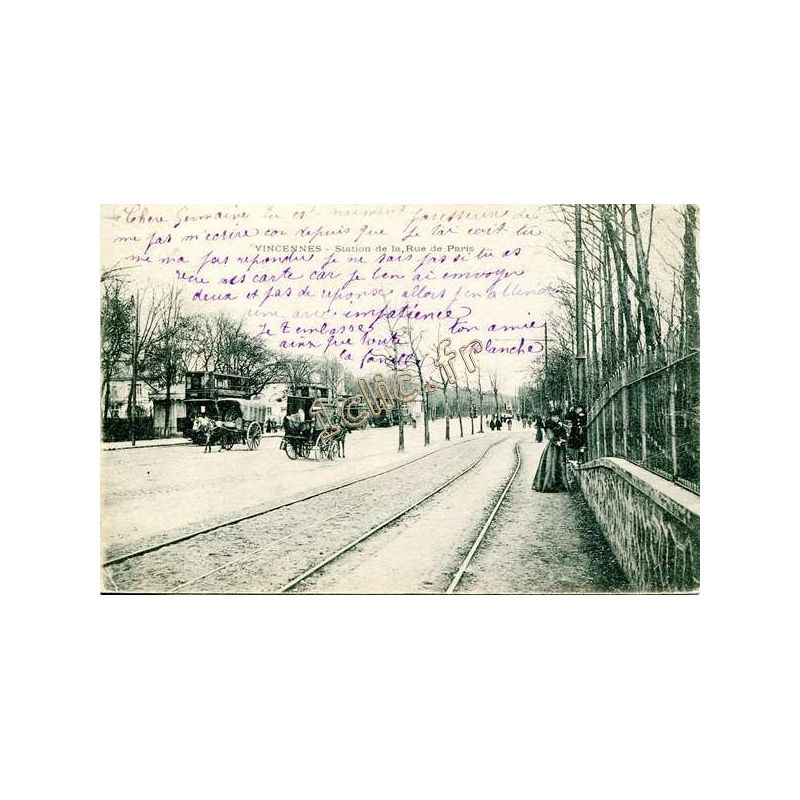 Chere Germaine tu es vraiment paresseuse de
me pas m'ecrire car depuis que je tai ecrit tu
VINCENNES - Station de la Rue de Paris
me ma pas repondu je ne sais pas si tu as
recu mes carte car je ten ai envoyer
deux et pas de reponse allors j'en attend
une avec impatience
Je t embrasse ton amie
ainx que toute Blanche
la famille
1clic.fr